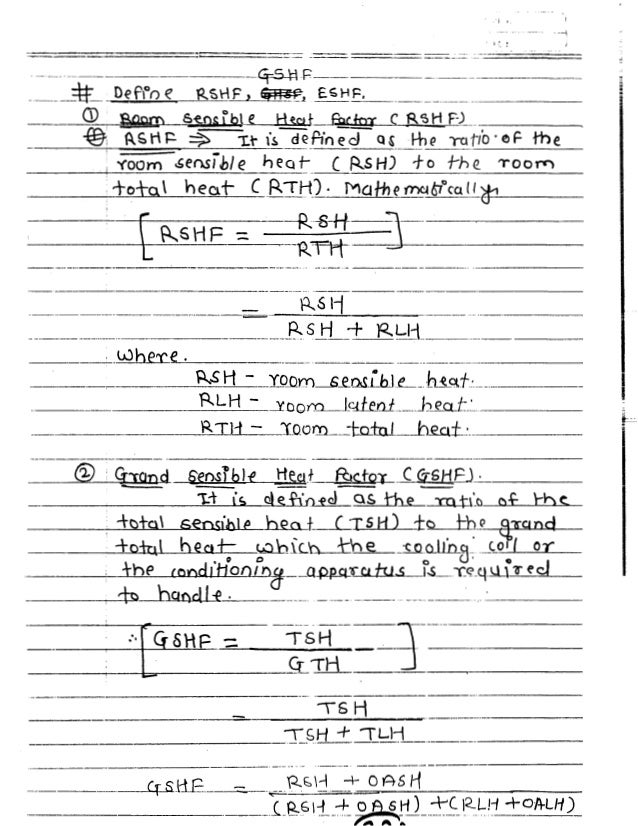 GSHF
# Define RSHF, GHSF, ESHF.
① Room Sensible Heat Factor (RSHF)
RSHF ⇒ It is defined as the ratio of the
room sensible heat (RSH) to the room
total heat (RTH). Mathematically,
[RSHF = RSH / RTH]
= RSH / RSH + RLH
where.
RSH - room sensible heat.
RLH - room latent heat.
RTH - room total heat.
② Grand Sensible Heat Factor (GSHF).
It is defined as the ratio of the
total sensible heat (TSH) to the grand
total heat which the cooling coil or
the conditioning apparatus is required
to handle.
∴ [GSHF = TSH / GTH]
= TSH / TSH + TLH
GSHF = RSH + OASH / (RSH + OASH) + (RLH + OALH)